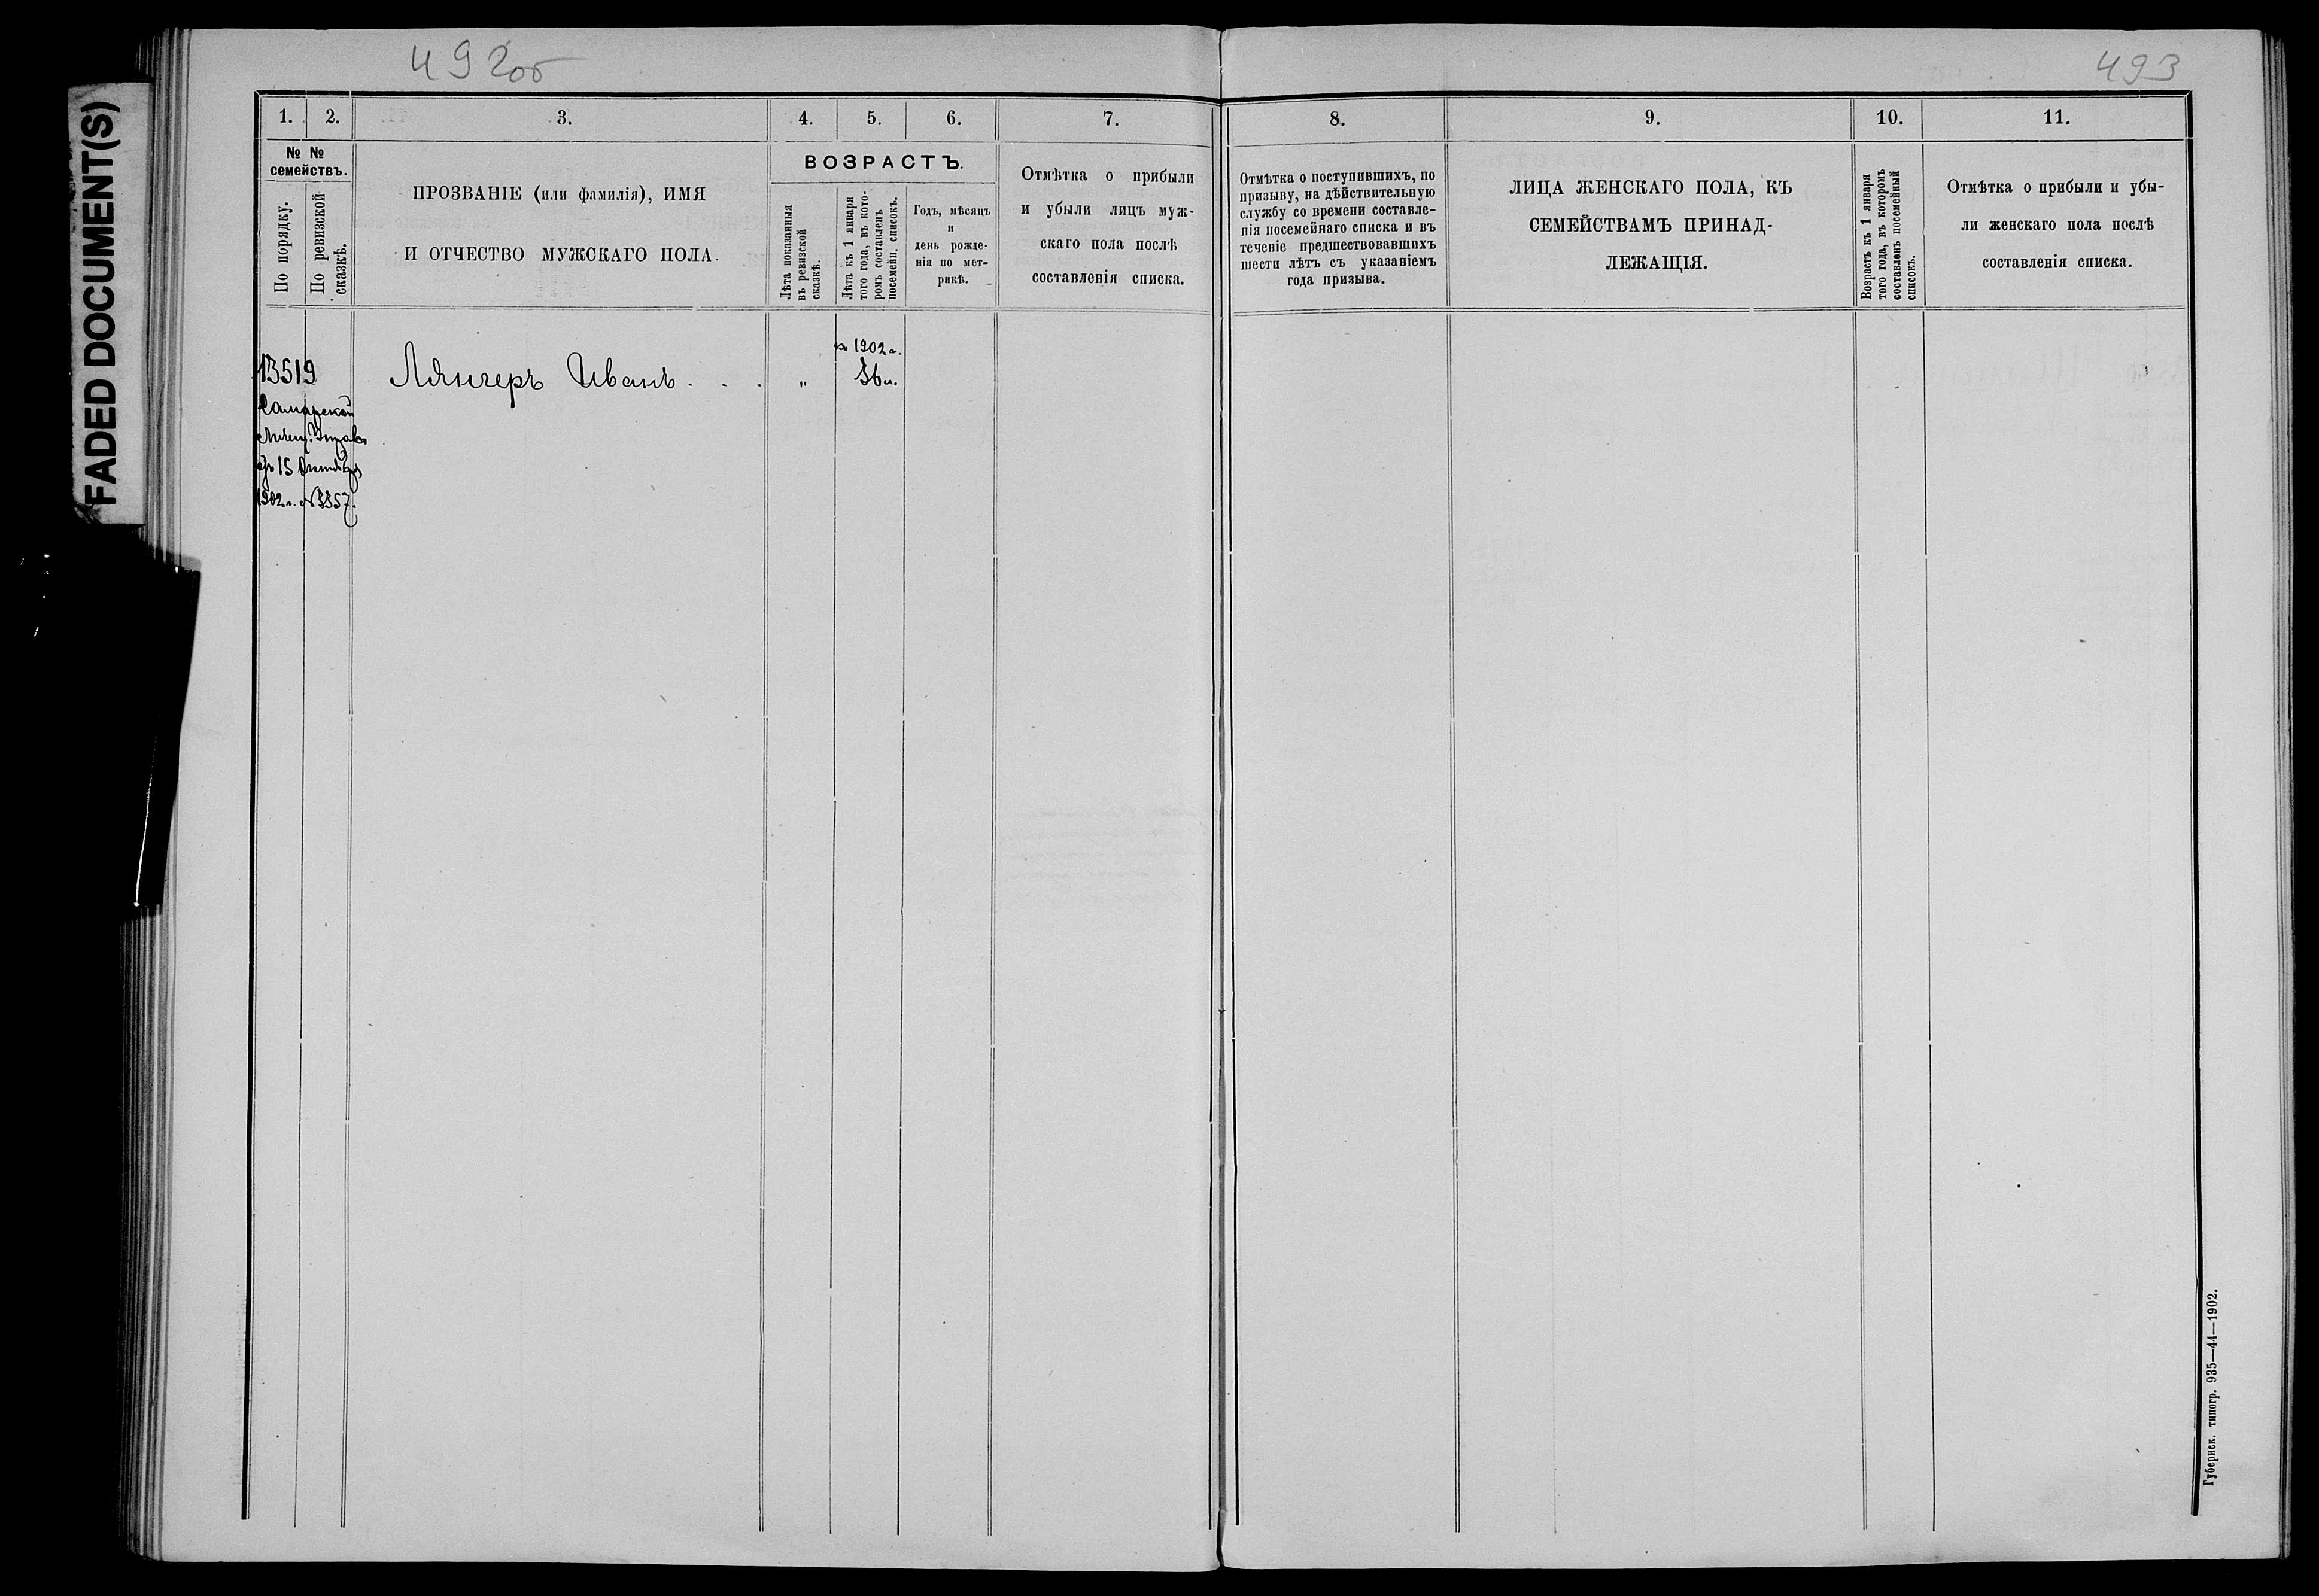 FADED DOCUMENT(S)
492об
493
1. 2. 3. 4. 5. 6. 7. 8. 9. 10. 11.
№ №
семействъ.
По порядку.
По ревизской
сказкѣ.
ПРОЗВАНІЕ (или фамилія), ИМЯ
И ОТЧЕСТВО МУЖСКАГО ПОЛА.
ВОЗРАСТЪ.
Лѣта показанныя
въ ревизской
сказкѣ.
Лѣта къ 1 января
того года, въ кото-
ромъ составленъ
посемейн. списокъ.
Годъ, мѣсяцъ
и
день рожде-
нія по мет-
рикѣ.
Отмѣтка о прибыли
и убыли лицъ муж-
скаго пола послѣ
составленія списка.
Отмѣтка о поступившихъ, по
призыву, на дѣйствительную
службу со времени составле-
нія посемейнаго списка и въ
теченіе предшествовавшихъ
шести лѣтъ съ указаніемъ
года призыва.
ЛИЦА ЖЕНСКАГО ПОЛА, КЪ
СЕМЕЙСТВАМЪ ПРИНАД-
ЛЕЖАЩІЯ.
Возрастъ къ 1 января
того года, въ которомъ
составленъ посемейный
списокъ.
Отмѣтка о прибыли и убы-
ли женскаго пола послѣ
составленія списка.
13519
Самарской
15 Октября
1902 г. № 3357.
Лянгеръ Иванъ . . .
"
1902 г.
36 л.
Губернск. типогр. 935—44—1902.